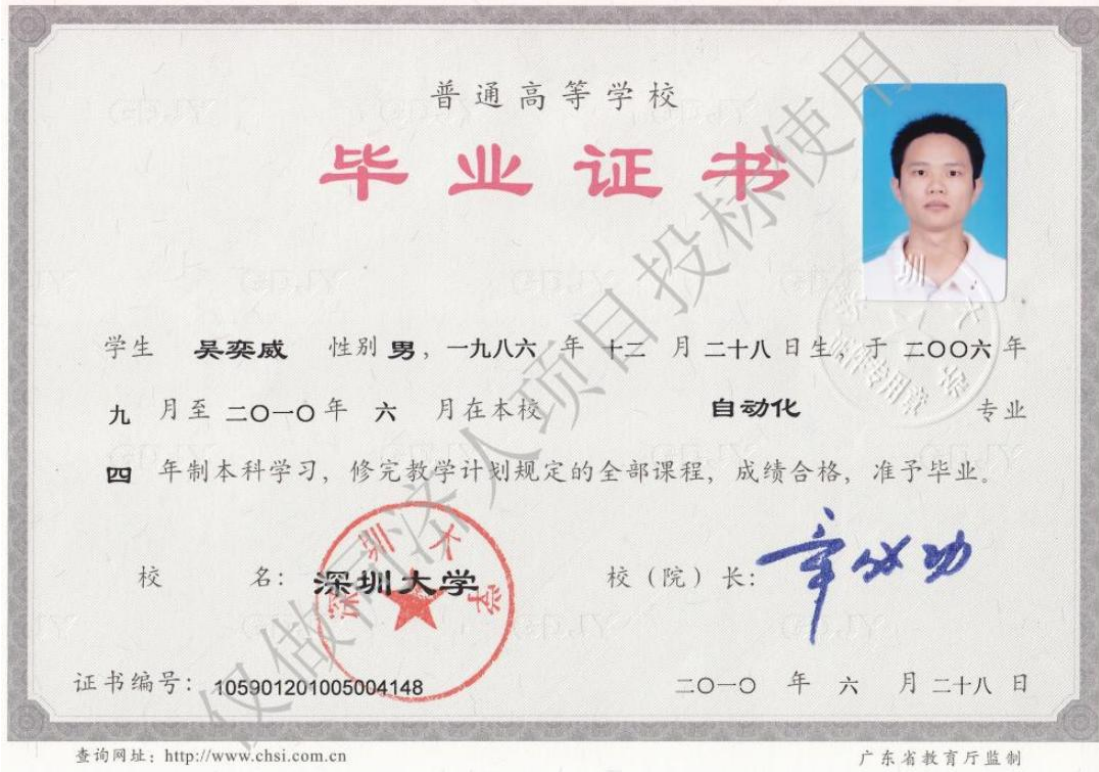 普通高等学校
毕业证书
学生 吴奕威 性别 男，一九八六 年 十二 月 二十八 日生，于 二〇〇六 年
九 月至 二〇一〇 年 六 月在本校 自动化 专业
四 年制本科学习，修完教学计划规定的全部课程，成绩合格，准予毕业。
校 名： 深圳大学 校（院）长： 章必功
深圳大学
证书编号： 105901201005004148 二〇一〇 年 六 月 二十八 日
查询网址：http://www.chsi.com.cn 广东省教育厅监制